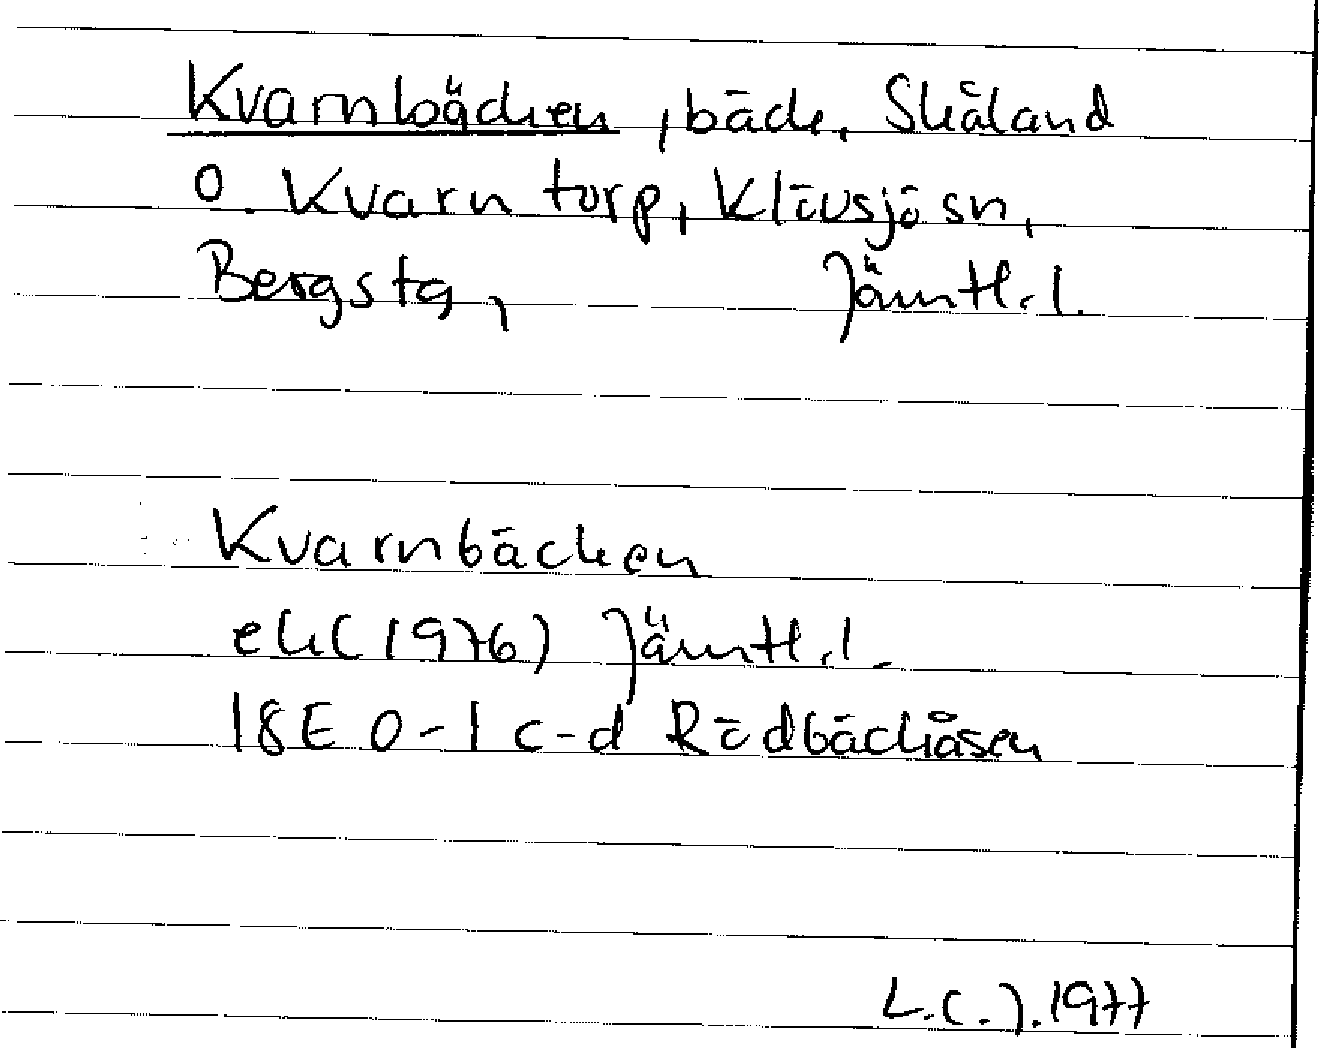 Kvarnbäcken, bäck, Skåland
o. Kvarntorp, Klövsjö sn,
Bergs tg, Jämtl. l.
Kvarnbäcken
ek (1976) Jämtl. l.
18E 0-1 c-d Rödbäckåsen
L.C.J. 1977